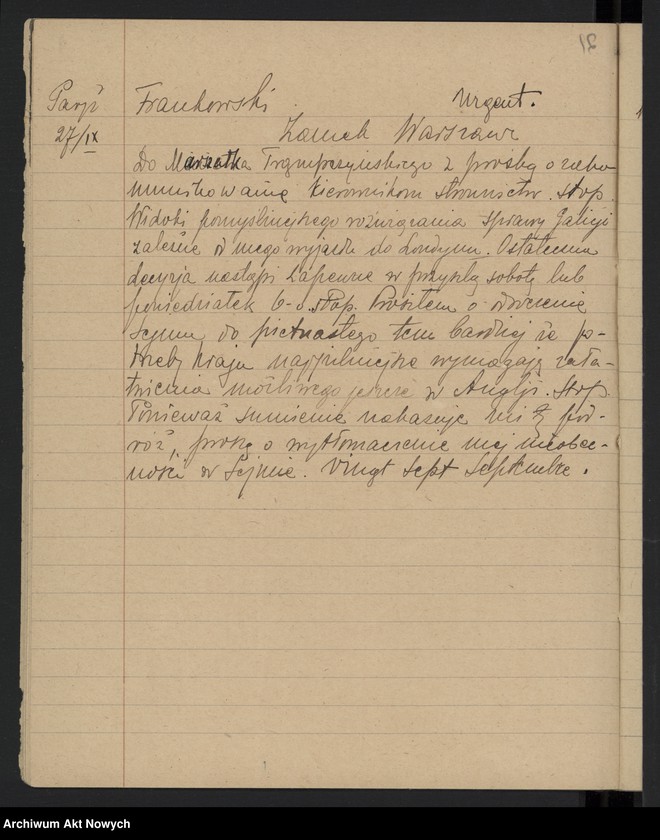 18
Paryż
27/IX
Frankowski
Urgent.
Zamek Warszawa
Do Marszałka Trąmpczyńskiego z prośbą o zako-
munikowanie kierownikom stronnictw. stop
Widoki pomyślniejszego rozwiązania sprawy Galicji
zależne od mego wyjazdu do Londynu. Ostateczna
decyzja nastąpi zapewne w przyszłą sobotę lub
poniedziałek 6-o. stop. Prosiłem o odroczenie
Sejmu do piętnastego tem bardziej że po-
trzeby kraju najpilniejsze wymagają zała-
twienia możliwego jeszcze w Anglji. stop
Ponieważ sumienie nakazuje mi tę pod-
róż, proszę o wytłomaczenie mej nieobec-
ności w Sejmie. Vingt sept Septembre.
Archiwum Akt Nowych